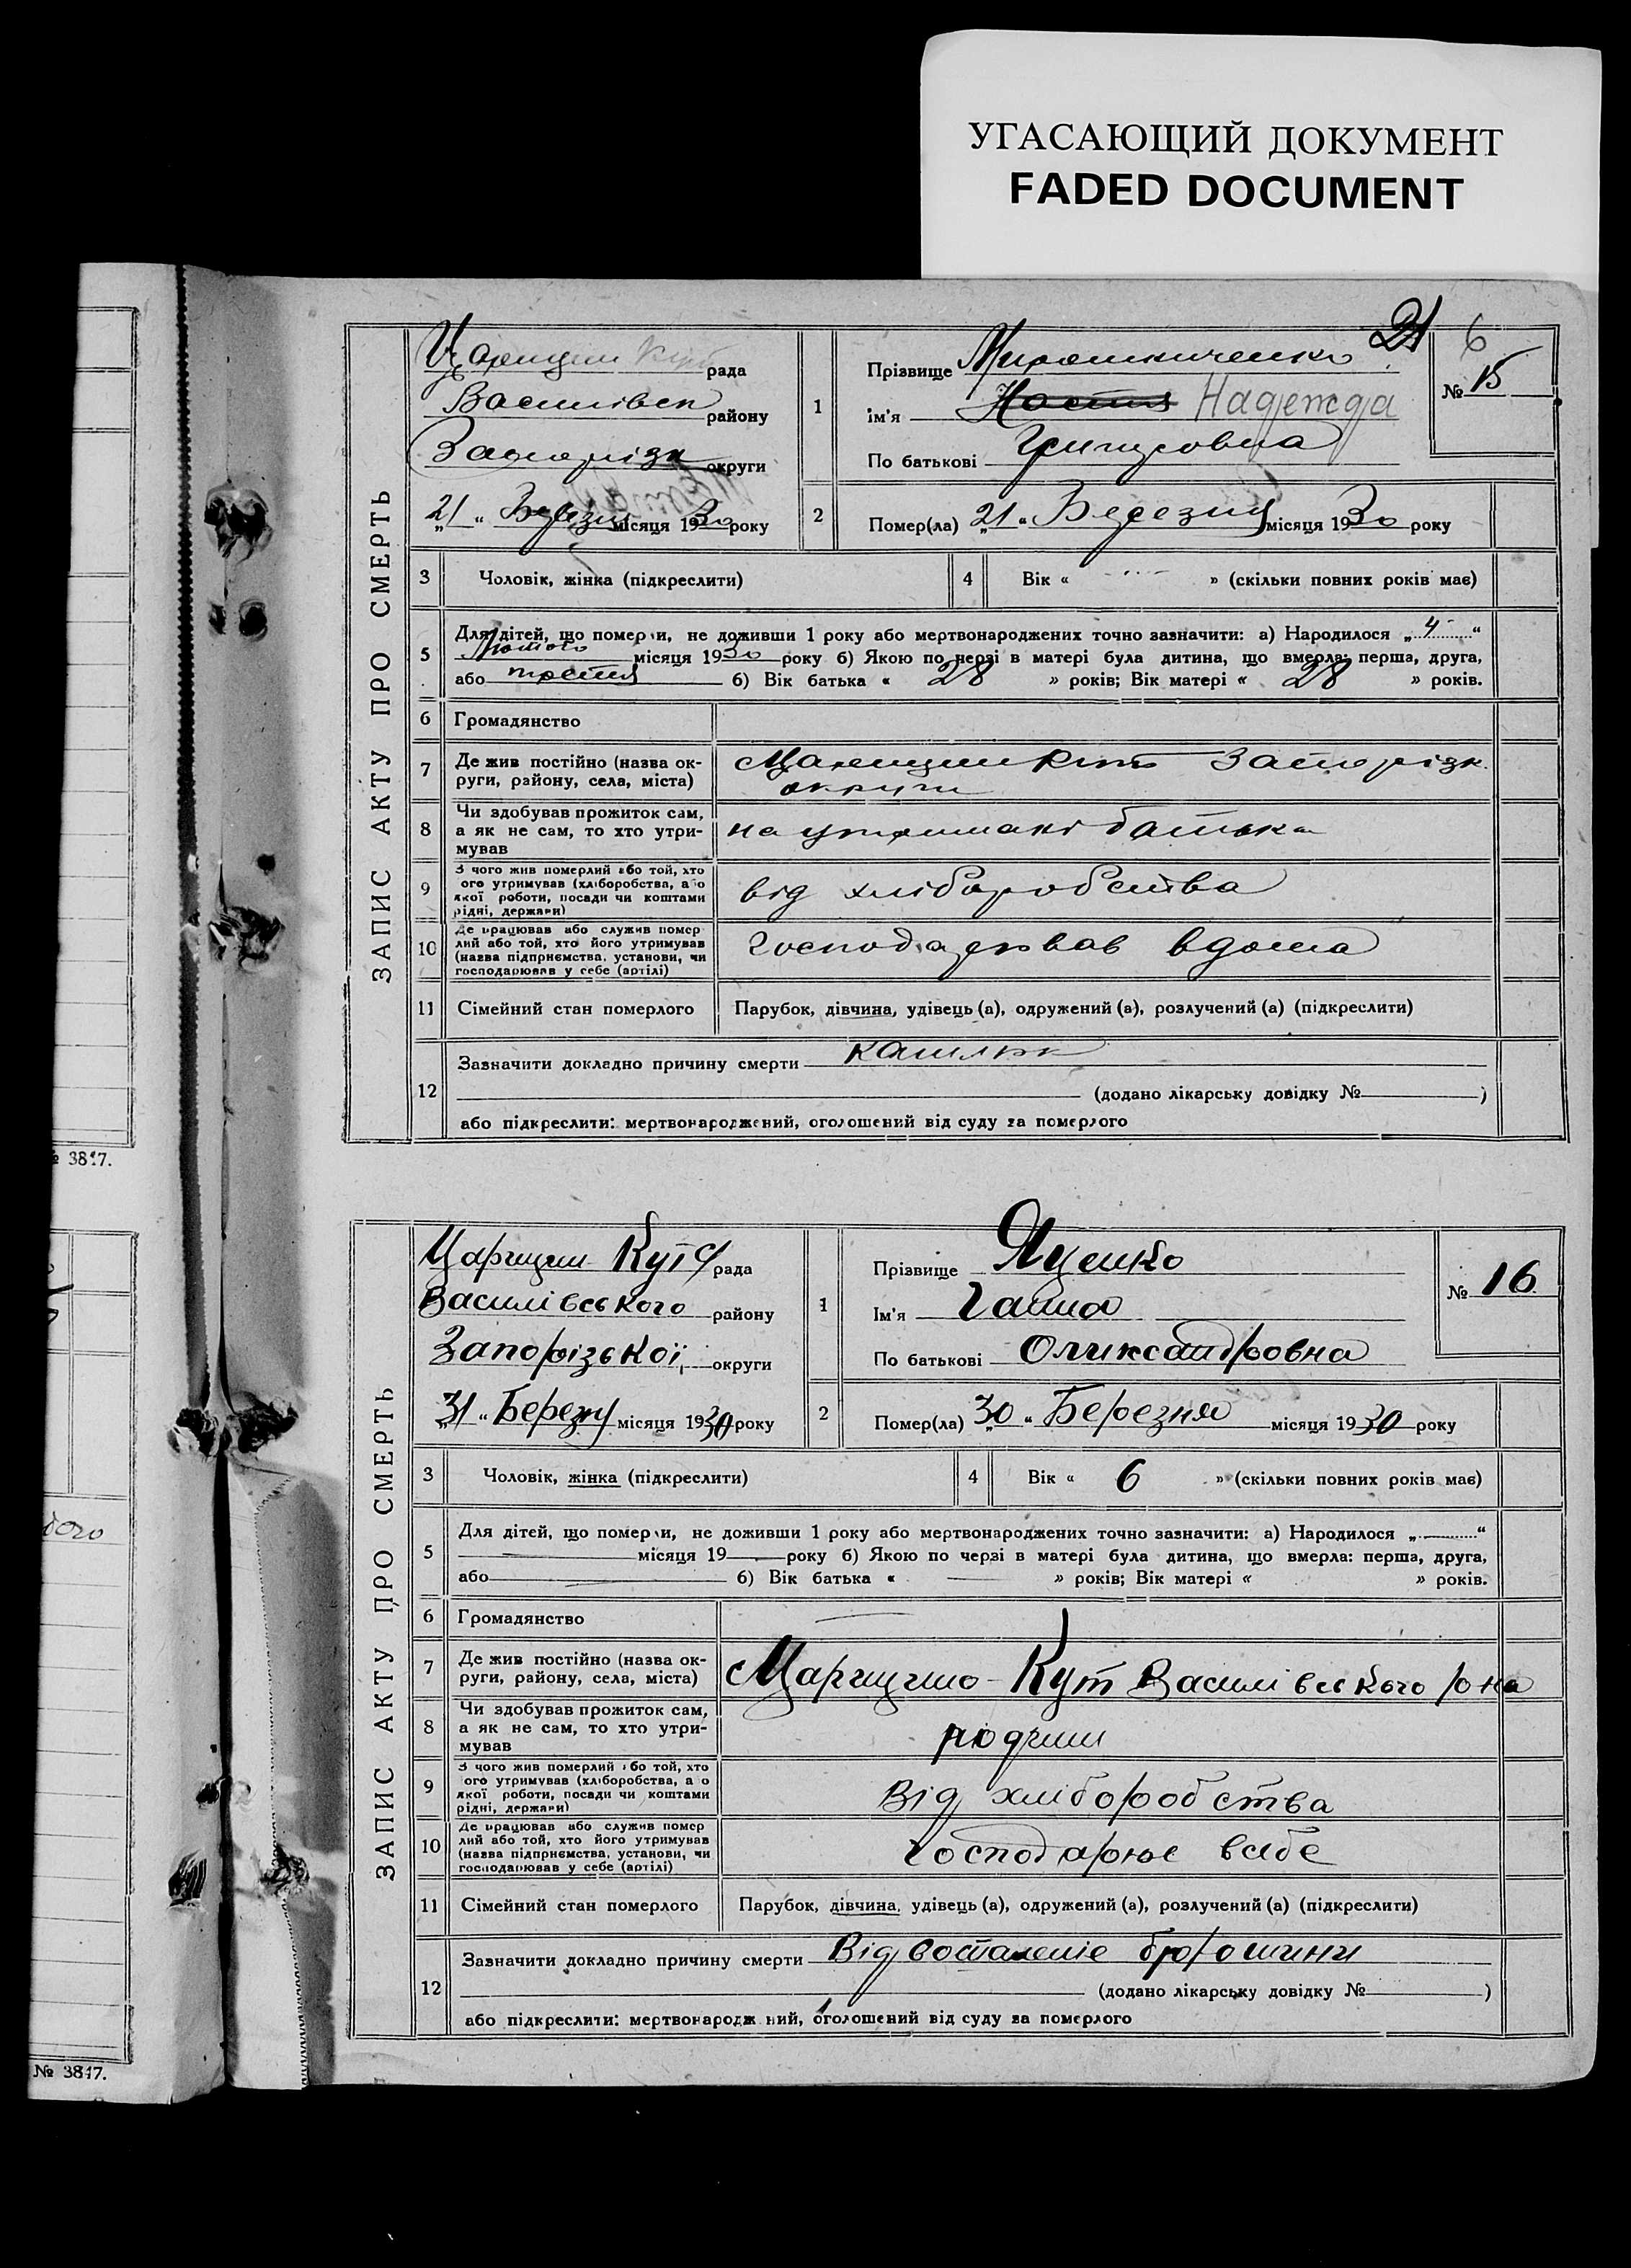 УГАСАЮЩИЙ ДОКУМЕНТ
FADED DOCUMENT
21 6
ЗАПИС АКТУ ПРО СМЕРТЬ
Царицин Кут рада
Василівск району
Запорізк округи
„21“ Березня місяця 1930 року
1
Прізвище Мирошниченко
ім'я Настя Надежда
По батькові Григоровна
№ 15
2
Помер(ла) „21“ Березня місяця 1930 року
3 Чоловік, жінка (підкреслити)
4 Вік « » (скільки повних років має)
5 Для дітей, що померли, не доживши 1 року або мертвонароджених точно зазначити: а) Народилося „4“
Лютого місяця 1930 року б) Якою по черзі в матері була дитина, що вмерла: перша, друга,
або третя б) Вік батька « 28 » років; Вік матері « 28 » років.
6 Громадянство
7 Де жив постійно (назва ок-
руги, району, села, міста)
Царицин Кут Запорізк.
округи
8 Чи здобував прожиток сам,
а як не сам, то хто утри-
мував
на утримані батька
9 З чого жив померлий або той, хто
ого утримував (хліборобства, або
якої роботи, посади чи коштами
рідні, держави)
від хліборобства
10 Де працював або служив помер
лий або той, хто його утримував
(назва підприємства, установи, чи
господарював у себе (артілі)
Господарював вдома
11 Сімейний стан померлого Парубок, дівчина, удівець (а), одружений (а), розлучений (а) (підкреслити)
12 Зазначити докладно причину смерти кашлюк
(додано лікарську довідку № )
або підкреслити: мертвонароджений, оголошений від суду за померлого
№ 3817.
ЗАПИС АКТУ ПРО СМЕРТЬ
Царицин Кутя рада
Василівського району
Запорізької округи
„31“ Березня місяця 1930 року
1
Прізвище Яценко
Ім'я Ганна
По батькові Олександровна
№ 16
2
Помер(ла) „30“ Березня місяця 1930 року
3 Чоловік, жінка (підкреслити)
4 Вік « 6 » (скільки повних років має)
5 Для дітей, що померли, не доживши 1 року або мертвонароджених точно зазначити: а) Народилося „ “
місяця 19 року б) Якою по черзі в матері була дитина, що вмерла: перша, друга,
або б) Вік батька « » років; Вік матері « » років.
6 Громадянство
7 Де жив постійно (назва ок-
руги, району, села, міста)
Царицино-Кут Василівського р-на
8 Чи здобував прожиток сам,
а як не сам, то хто утри-
мував
родчии
9 З чого жив померлий або той, хто
ого утримував (хліборобства, а о
якої роботи, посади чи коштами
рідні, держави)
Від хліборобства
10 Де працював або служив помер
лий або той, хто його утримував
(назва підприємства, установи, чи
господарював у себе (артілі)
Господарює всебе
11 Сімейний стан померлого Парубок, дівчина, удівець (а), одружений (а), розлучений (а) (підкреслити)
12 Зазначити докладно причину смерти Від восталеніе брюошини
(додано лікарську довідку № )
або підкреслити: мертвонародж ний, оголошений від суду за померлого
№ 3817.